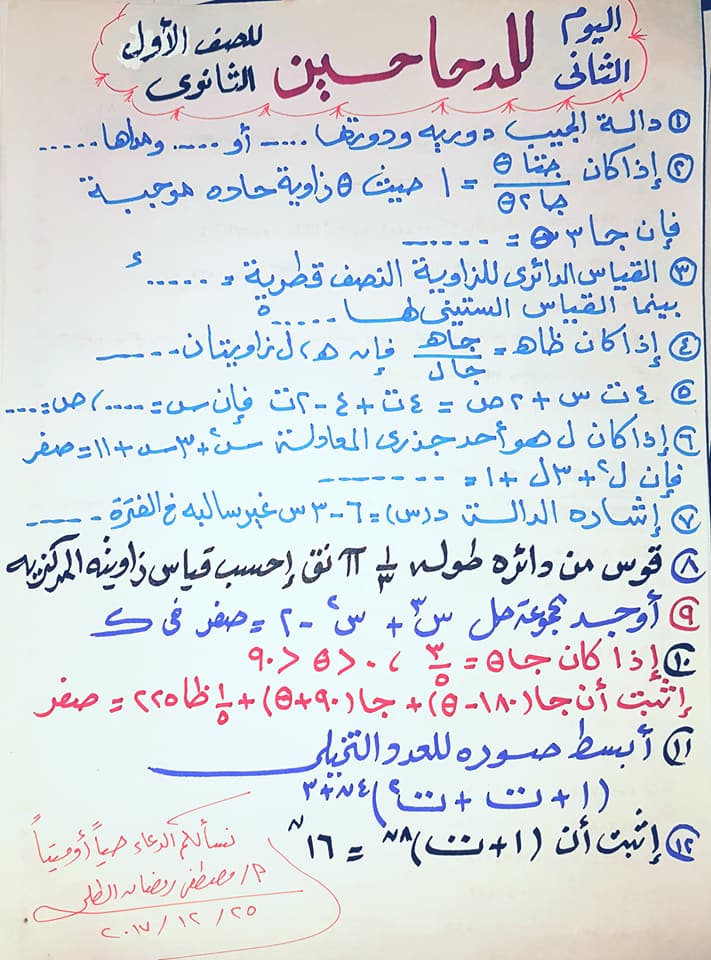 اليوم الثاني للدحاحين للصف الأول الثانوى
① دالة الجيب دورية ودورتها ..... أو ..... ومداها .....
② إذا كان جتا θ / جا ٢θ = ١ حيث θ زاوية حاده موجبة
فإن جا ٣θ = ......
③ القياس الدائرى للزاوية النصف قطرية = .....ء
بينما القياس الستينى لها .....°
④ إذا كان ظاهـ = جاهـ / جال فإنه هـ، ل زاويتان ......
⑤ ٤ت س + ٢ص = ٤ت + ٤ - ٢ت فإن س = ..... ، ص = ....
⑥ إذا كان ل هو أحد جذرى المعادلة س٢ + ٣س + ١١ = صفر
فإن ل٢ + ٣ل + ١ = .......
⑦ إشاره الدالة د(س) = ٦ - ٣س غير سالبه خ الفترة .....
⑧ قوس من دائره طوله ١/٣ π نق إحسب قياس زاويته المركزيه
⑨ أوجد مجموعة حل س٣ + س٢ - ٢ = صفر فى ك
⑩ إذا كان جاθ = ٣/٥ ، ٠ < θ < ٩٠
إثبت أن جا(١٨٠-θ) + جا(٩٠+θ) + ١/٥ ظا٢٢٥ = صفر
⑪ أبسط صوره للعدد التخيلى
(١ + ت + ت٢)٤ن+٣
⑫ إثبت أن (١+ت)٨ن = ١٦ن
نسألكم الدعاء حياً أو ميتاً
م/ مصطفى رمضان
٢٥ / ١٢ / ٢٠١٧